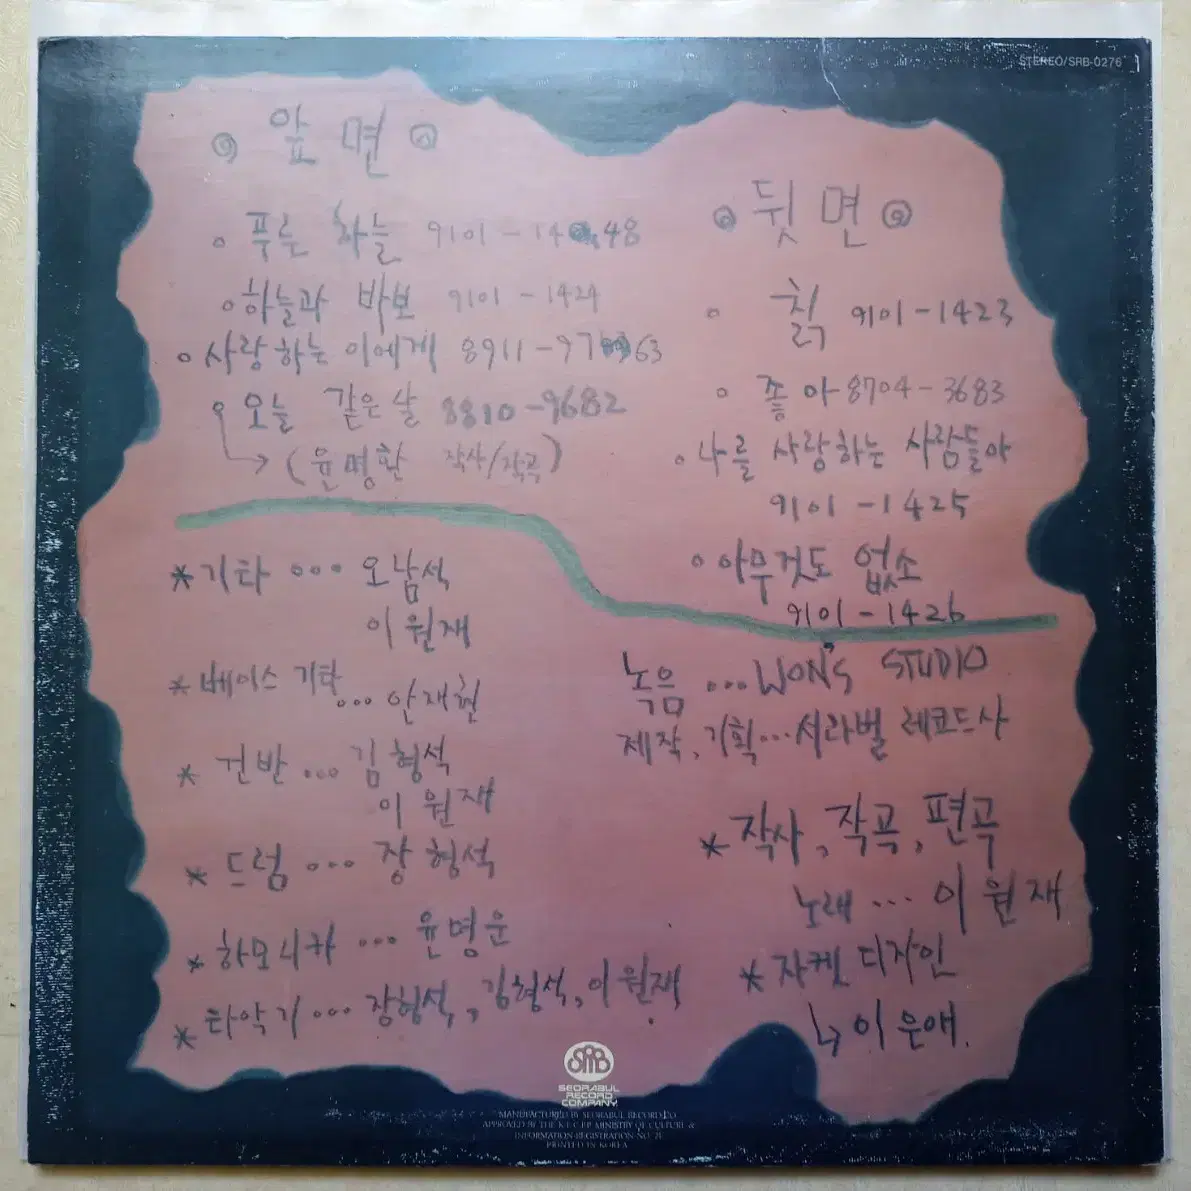 STEREO/SRB-0276
앞면
푸른 하늘 9101-14 48
하늘과 바보 9101-1424
사랑하는 이에게 8911-97 63
오늘 같은 날 8810-9682
(윤명환 작사/작곡)
뒷면
칡 9101-1423
좋아 8704-3683
나를 사랑하는 사람들아
9101-1425
아무것도 없소
9101-1426
*기타 ... 오남석
이원재
*베이스 기타 ... 안재현
*건반 ... 김형석
이원재
*드럼 ... 장형석
*하모니카 ... 윤명운
*타악기 ... 장형석, 김형석, 이원재.
녹음 ... WON'S STUDIO
제작, 기획 ... 서라벌 레코드사
*작사, 작곡, 편곡
노래 ... 이원재
*자켓 디자인
↳ 이은애.
SRB
SEORABUL
RECORD
COMPANY
MANUFACTURED BY SEORABUL RECORD CO.
APPROVED BY THE K.E.C.P.P. MINISTRY OF CULTURE &
INFORMATION REGISTRATION NO.
PRINTED IN KOREA